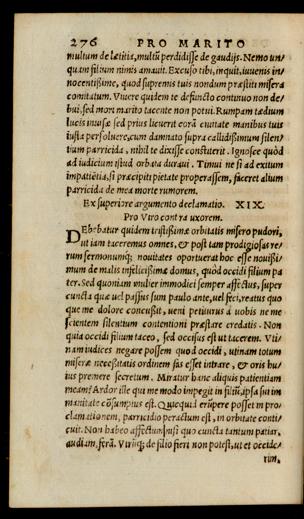 276 PRO MARITO
multum de lætitia, multũ perdidisse de gaudijs. Nemo un/
quam filium nimis amauit. Excuso tibi, inquit, iuuenis in/
nocentissime, quod supremis tuis nondum præstiti misera
comitatum. Viuere quidem te defuncto continuo non de/
bui, sed mori marito tacente non potui. Rumpam tædium
lucis inuisæ sed prius liquerit eorã ciuitate manibus tuis
iusta persoluere, cum damnato supra callidissimum silen/
tium parricida, nihil te dixisse constiterit. Ignosce quòd
ad iudicium istud orbata duraui. Timui ne si ad exitum
impatiẽtia, si præcipiti pietate properassem, faceret alium
parricida de mea morte rumorem.
Ex superiore argumento declamatio. XIX.
Pro Viro contra uxorem.
DEbebatur quidem tristissimæ orbitatis misero pudori,
ut iam taceremus omnes, & post tam prodigiosas re/
rum sermonumq́; nouitates oportuerat hoc esse nouissi/
mum de malis infelicissimæ domus, quòd occidi filium pa/
ter. Sed quoniam mulier immodici semper affectus, super
cuncta quæ uel passus sum paulo ante, uel feci, reatus quo
que me dolore concussit, ueni petiturus à uobis ne me
scientem silentium contentioni præstare credatis. Non
quia occidi filium taceo, sed occisus est ut tacerem. Vti/
nam iudices negare possem quod occidi, utinam totum
miseræ necessitatis ordinem fas esset intrare, & oris hu/
ius premere secretum. Miratur hanc aliquis patientiam
meam? Ardor ille qui me modo impegit in filiũ, ipsa sui im
manitate cõsumptus est. Quicquid erũpere posset in pro/
clamationem, parricidio peractum est, in orbitate conti/
cuit. Non habeo affectum, nisi quo cuncta tantum patiar,
audiam, ferã. Vtrũq́; de filio fieri non potest, ut et occide/
rim,